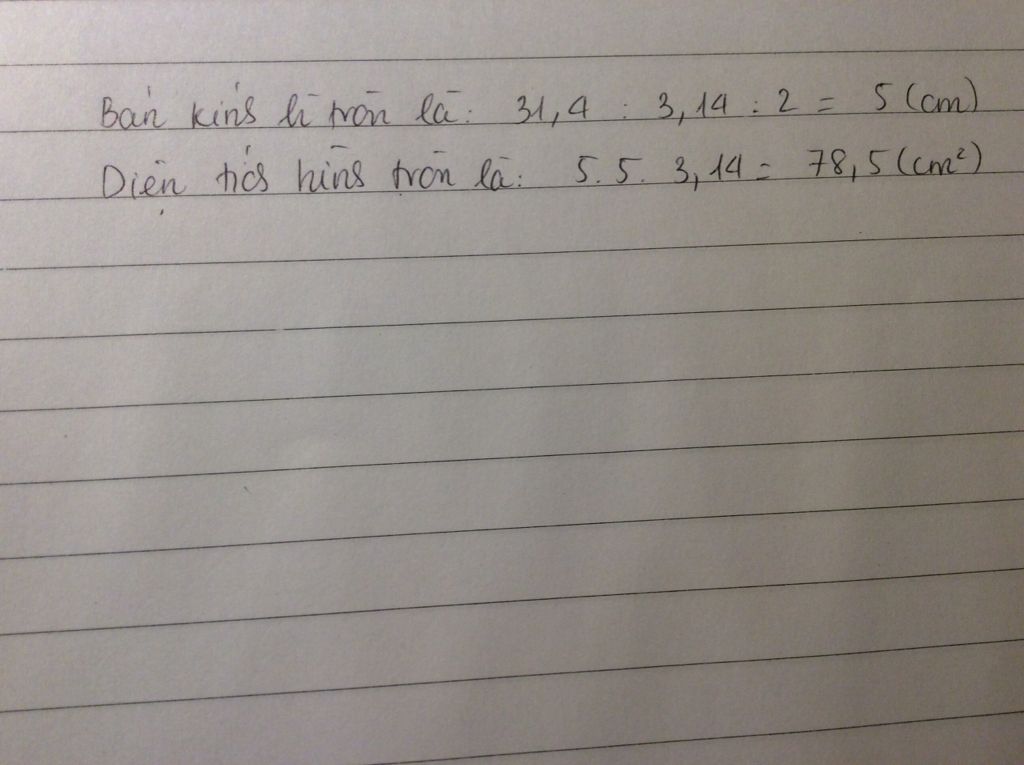 Bán kính h tròn là: 31,4 : 3,14 : 2 = 5 (cm)
Diện tích hình tròn là: 5. 5. 3,14 = 78,5 (cm²)